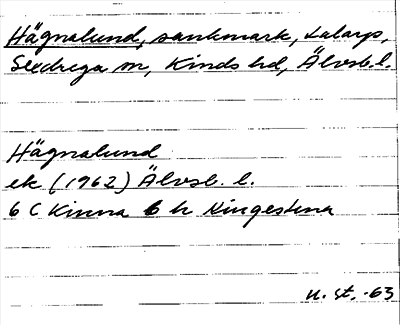 Hägnalund, sankmark, Dalarp,
Sexdrega sn, Kinds hd, Älvsb. l.
Hägnalund
ek (1962) Älvsb. l.
6 C Kinna 6 h Ringestena
u. st. -63